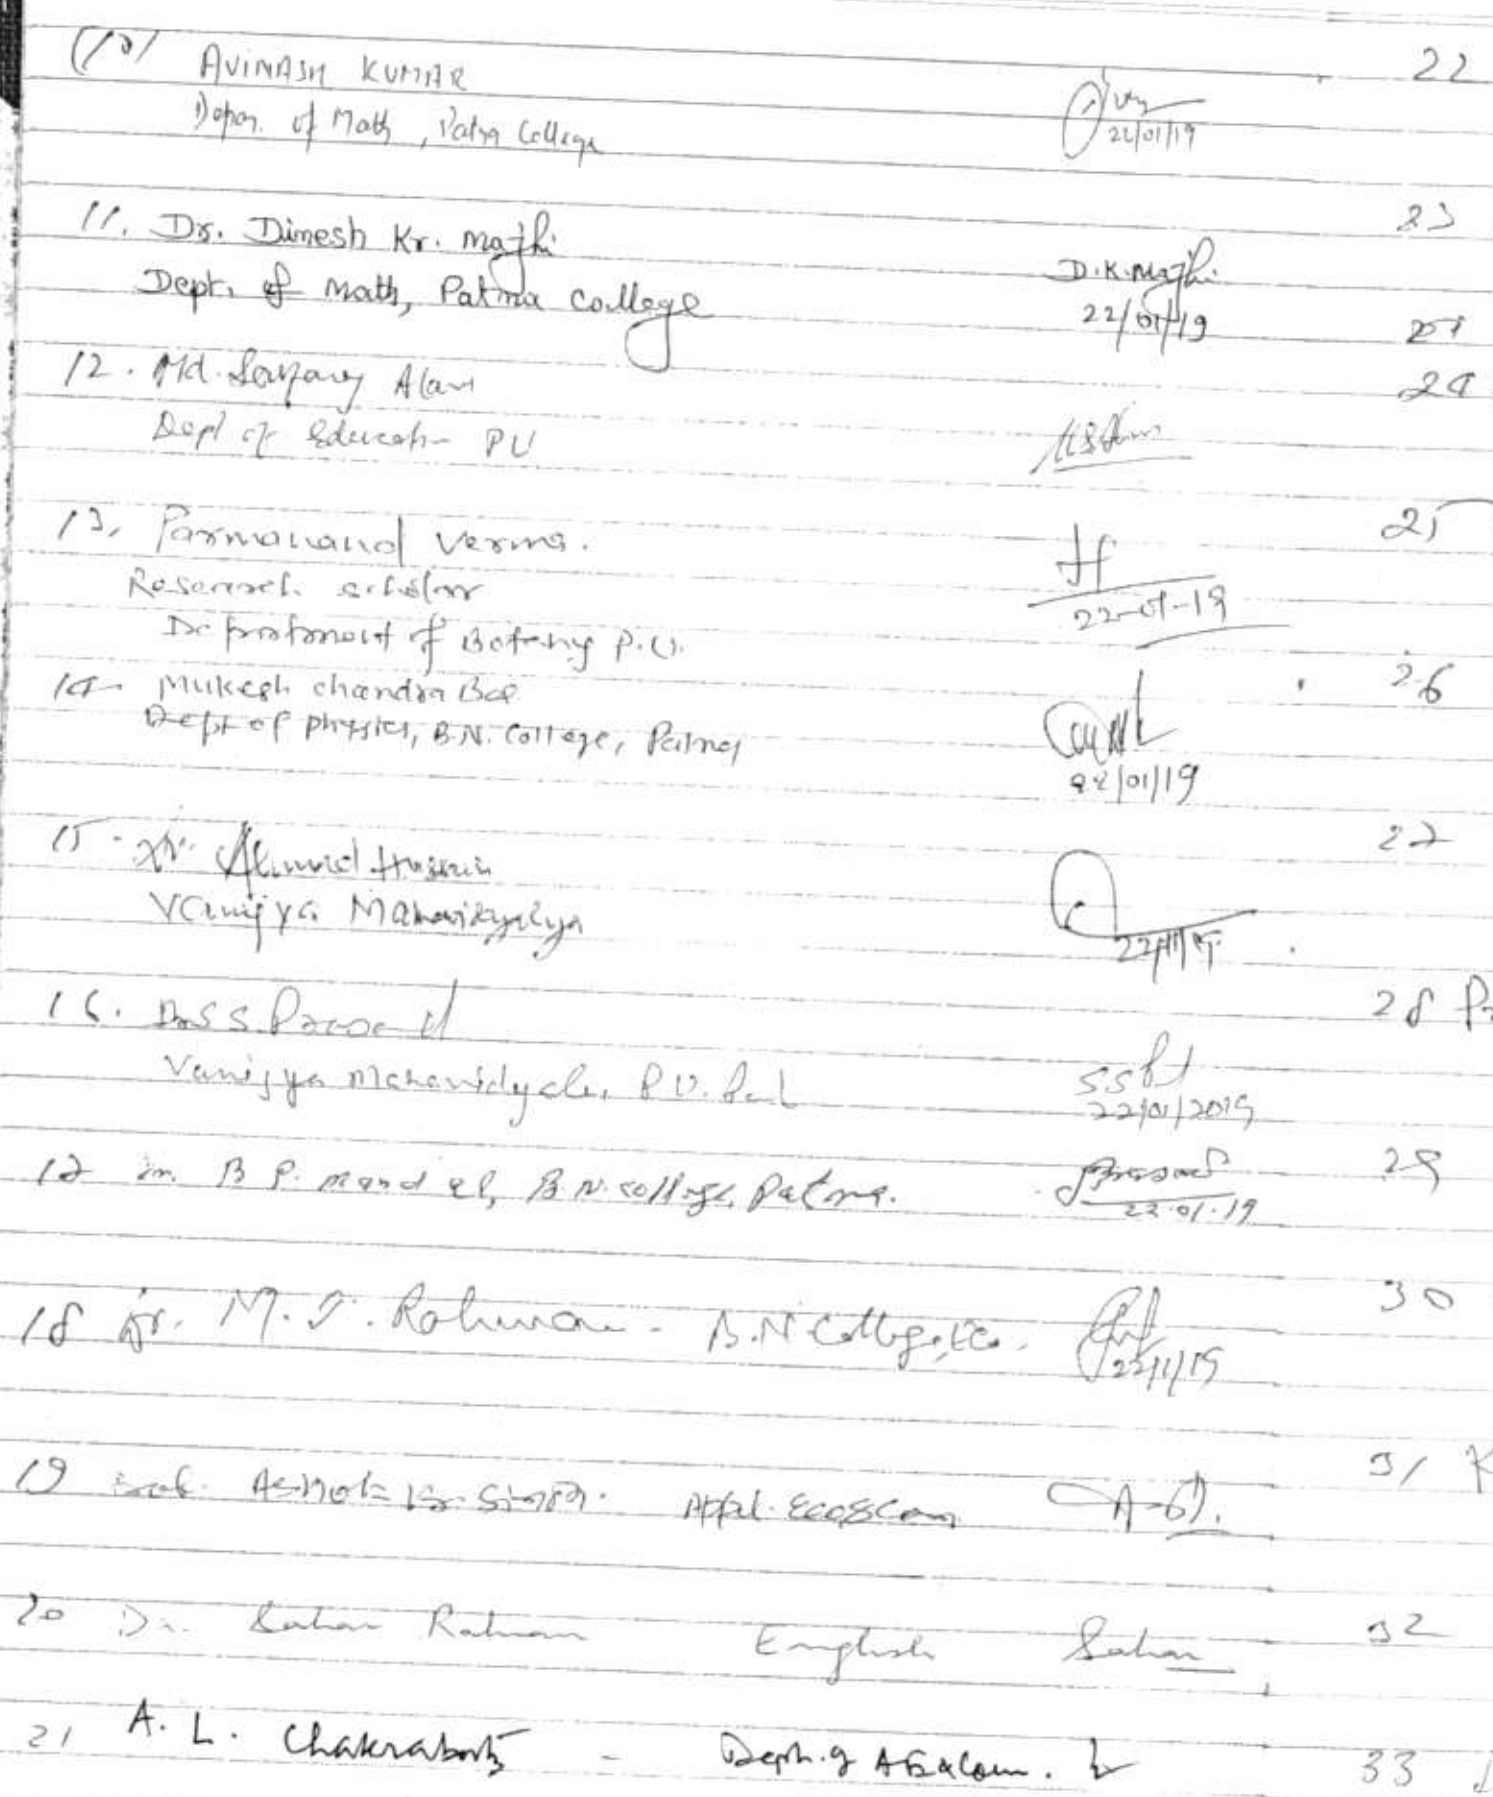 (10) AVINASH KUMAR 22
Depar. of Math, Patna College
22/01/19
11. Dr. Dinesh Kr. Majhi 23
D.K.Majhi
Dept. of Math, Patna College
22/01/19
12. Md. Alam 24
Dept of Education PU
13. Parmanand Verma. 25
Research scholar
22-01-19
Department of Botany P.U.
14. Mukesh chandra 26
Dept of physics, B.N. College, Patna
22/01/19
15. Dr. Ahmad Hussain 27
Vanijya Mahavidyalya
22/1/19
16. Dr S S Prasad 28
Vanijya Mahavidyalya, P.U.
22/01/2019
17 B P. mandal, B.N. college, Patna. 29
22.01.19
18 Dr. M. Rahman - B.N College 30
22/1/19
19 Prof. Ashok Kr. Singh. Appl. Eco & Com 31 K
20 Dr. Sahar Rahman English Sahar 32
21 A. L. Chakraborty - Deptt. of A Eco & Com. 33